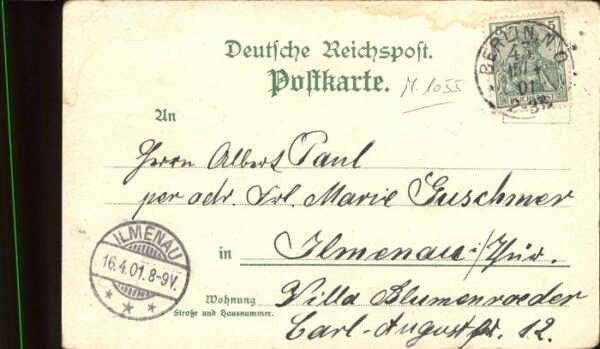 Deutsche Reichspost.
Postkarte.
M. 1055
5
BERLIN N.O.
43
01
REICHSPOST
An
Herrn Albert Paul
per adr. Frl. Marie Guschmer
in Ilmenau i/Thür.
ILMENAU
16.4.01.8-9V.
Wohnung Villa Blumenroeder
Straße und Hausnummer.
Carl-Auguststr. 12.